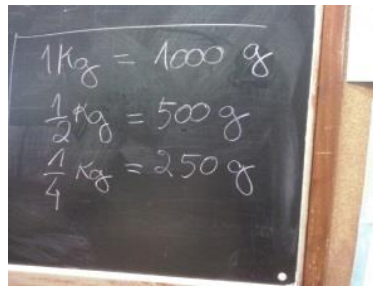 1Kg = 1000 g
1/2 Kg = 500 g
1/4 Kg = 250 g